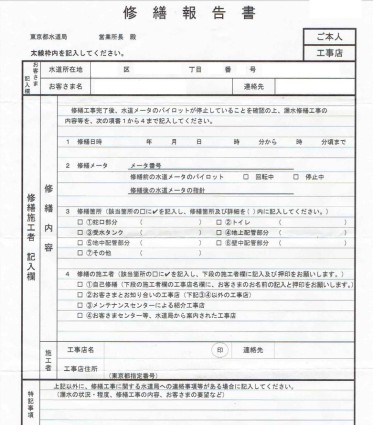 修繕報告書
東京都水道局　営業所長　殿
ご本人
工事店
太線枠内を記入してください。
お客さま記入欄
水道所在地　区　丁目　番　号
お客さま名　連絡先
修繕施工者　記入欄
修繕内容
修繕工事完了後、水道メータのパイロットが停止していることを確認の上、漏水修繕工事の
内容等を、次の項番1から4まで記入してください。
1 修繕日時　年　月　日　時　分から　時　分頃まで
2 修繕メータ　メータ番号
修繕前の水道メータのパイロット　□ 回転中　□ 停止中
修繕後の水道メータの指針
3 修繕箇所（該当箇所の□に✔を記入し、修繕箇所及び詳細を（ ）内に記入してください。）
□ ①蛇口部分　（　）　□ ②トイレ　（　）
□ ③受水タンク　（　）　□ ④地上配管部分　（　）
□ ⑤地中配管部分　（　）　□ ⑥壁中配管部分　（　）
□ ⑦その他　（　）
4 修繕の施工者（該当箇所の□に✔を記入し、下段の施工者欄に記入及び押印をお願いします。）
□ ①自己修繕（下段の施工者欄の工事店名欄に、お客さまのお名前の記入と押印をお願いします。）
□ ②お客さまとお知り合いの工事店（下記③④以外の工事店）
□ ③メンテナンスセンターによる紹介工事店
□ ④お客さまセンター等、水道局から案内された工事店
施工者
工事店名　印　連絡先
工事店住所
（東京都指定番号）
特記事項
上記以外に、修繕工事に関する水道局への連絡事項等がある場合に記入してください。
（漏水の状況・程度、修繕工事の内容、お客さまの要望など）